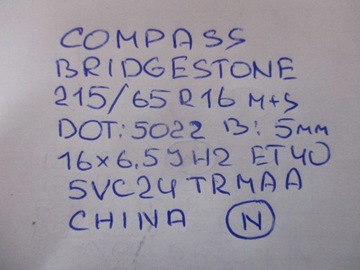 COMPASS
BRIDGESTONE
215/65 R16 M+S
DOT: 5022 B: 5MM
16x6.5J H2 ET40
5VC24TRMAA
CHINA N